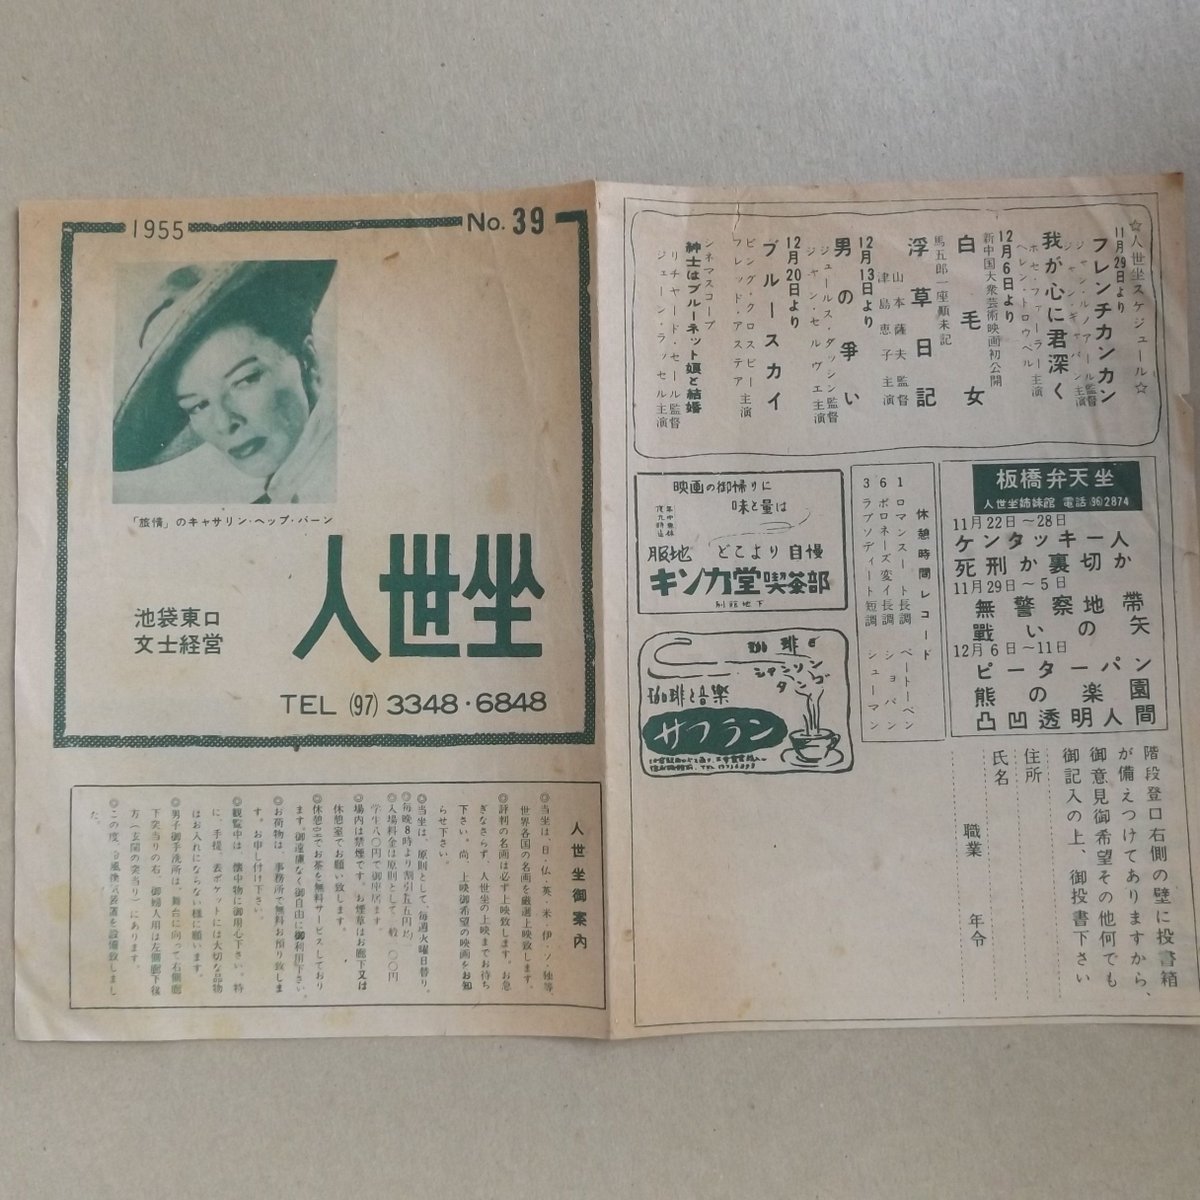 1955
No. 39
「旅情」のキャサリン・ヘップ・バーン
人世坐
池袋東口
文士経営
TEL (97) 3348・6848
人世坐御案内
◎当坐は日・仏・英・米・伊・ソ・独等、
世界各国の名画を厳選上映致します。
◎評判の名画は必ず上映致します。お急
ぎなさらず、人世坐の上映までお待ち
下さい。尚、上映御希望の映画をお知
らせ下さい。
◎当坐は、原則として、毎週火曜日替り。
◎毎晩8時より割引五五円均
◎入場料金は原則として、一般一〇〇円
学生八〇円で御座居ます。
◎場内は禁煙です。お煙草はお廊下又は
休憩室でお願い致します。
◎休憩室でお茶を無料サービスしており
ます。御遠慮なく御自由に御利用下さい。
◎お荷物は、事務所で無料お預り致しま
す。お申し付け下さい。
◎観覧中は、懐中物に御用心下さい。特
に、手提、表ポケットには大切な品物
はお入れにならない様に願います。
◎男子御手洗所は、舞台に向って右側廊
下突当りの右、御婦人用は左側廊下後
方(玄関の突当り)にあります。
◎この度、換気装置を設備致しまし
た。
☆人世坐スケジュール☆
11月29日より
フレンチカンカン
ジャン・ルノアール監督
ジャン・ギャバン主演
我が心に君深く
ホセ・ファーラー主演
ヘレン・トローベル
12月6日より
新中国大衆芸術映画初公開
白毛女
馬五郎一座顛末記
浮草日記
山本薩夫監督
津島恵子主演
12月13日より
男の争い
ジュールス・ダッシン監督
ジャン・セルヴェ主演
12月20日より
ブルースカイ
ビング・クロスビー主演
フレッド・アステア
シネマスコープ
紳士はブルーネット嬢と結婚
リチャード・セール監督
ジェーン・ラッセル主演
板橋弁天坐
人世坐姉妹館 電話(96)2874
11月22日～28日
ケンタッキー人
死刑か裏切か
11月29日～5日
無警察地帯
戰いの矢
12月6日～11日
ピーターパン
熊の楽園
凸凹透明人間
休憩時間レコード
1 ロマンス ト長調 ベートーベン
6 ポロネーズ変イ長調 ショパン
3 ラプソディート短調 シューマン
映画の御帰りに
味と量は
年中無休
夜九時迄
どこより自慢
服地
キンカ堂喫茶部
別館地下
珈琲と
シャンソン
タンゴ
珈琲と音楽
サフラン
階段登口右側の壁に投書箱
が備えつけてありますから、
御意見御希望その他何でも
御記入の上、御投書下さい
住所
氏名
職業 年令